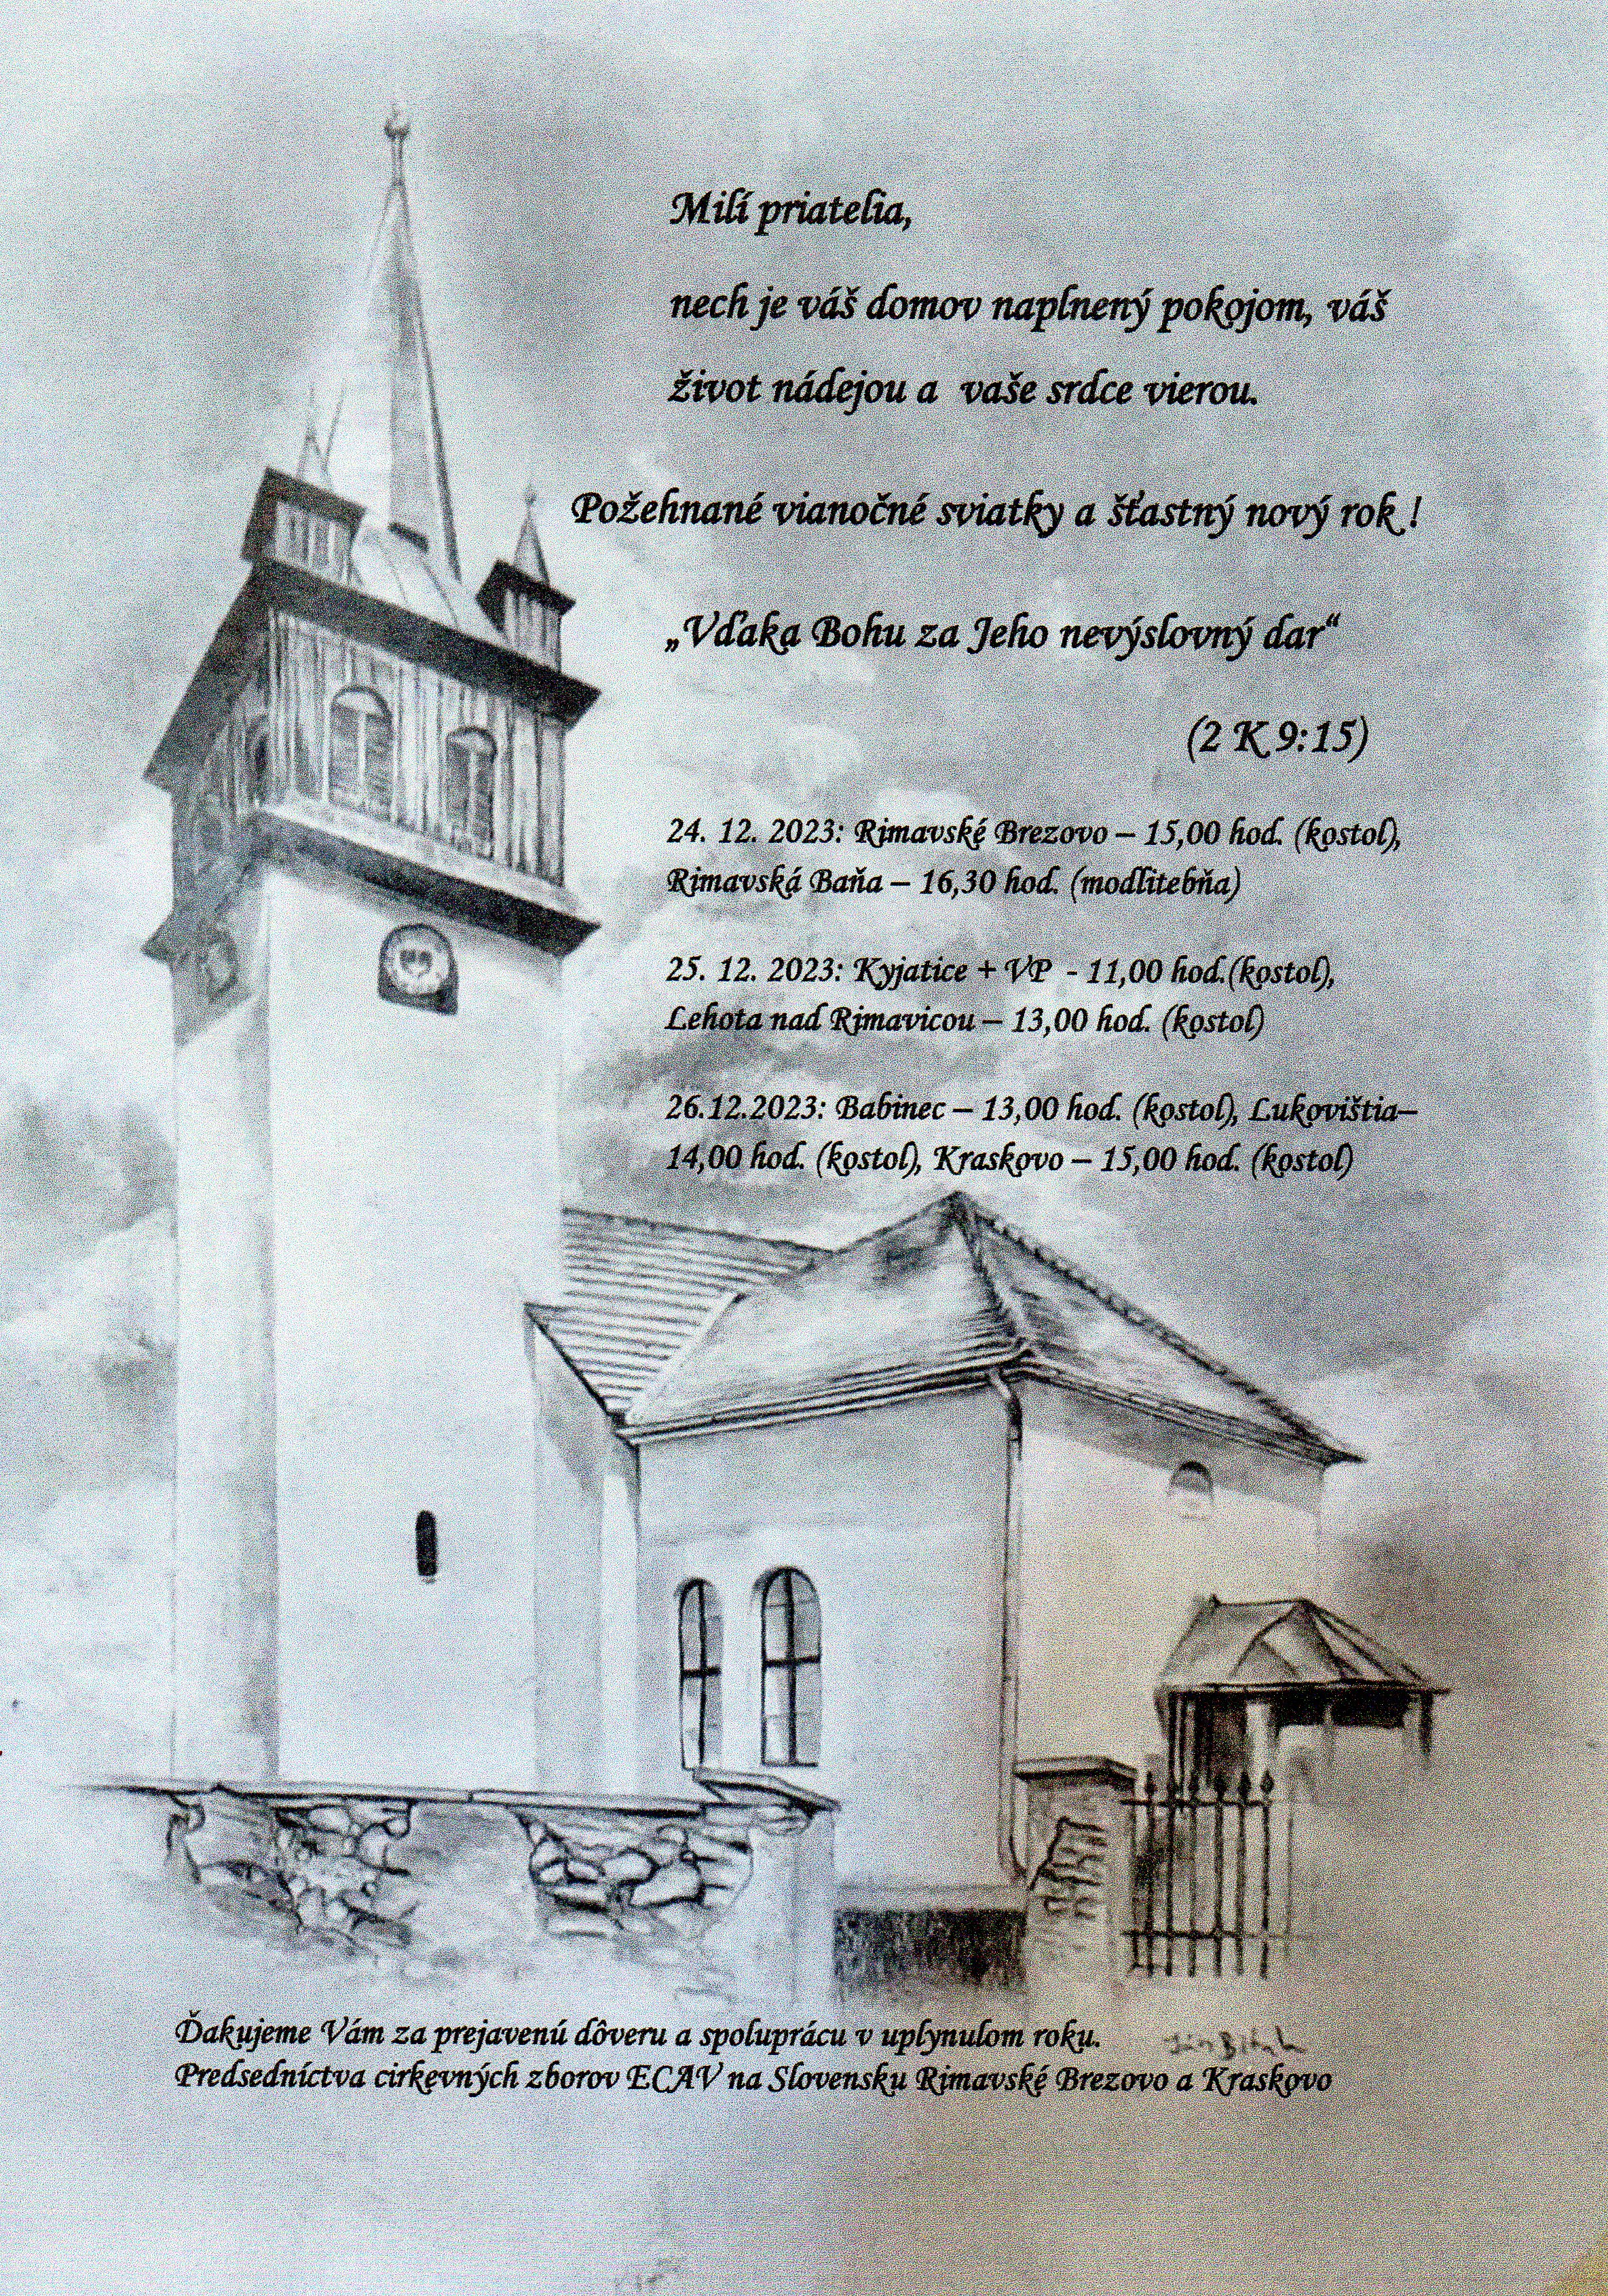 Milí priatelia,
nech je váš domov naplnený pokojom, váš
život nádejou a vaše srdce vierou.
Požehnané vianočné sviatky a šťastný nový rok !
„Vďaka Bohu za Jeho nevýslovný dar“
(2 K 9:15)
24. 12. 2023: Rimavské Brezovo – 15,00 hod. (kostol),
Rimavská Baňa – 16,30 hod. (modlitebňa)
25. 12. 2023: Kyjatice + VP - 11,00 hod.(kostol),
Lehota nad Rimavicou – 13,00 hod. (kostol)
26.12.2023: Babinec – 13,00 hod. (kostol), Lukovištia–
14,00 hod. (kostol), Kraskovo – 15,00 hod. (kostol)
Ďakujeme Vám za prejavenú dôveru a spoluprácu v uplynulom roku.
Predsedníctva cirkevných zborov ECAV na Slovensku Rimavské Brezovo a Kraskovo